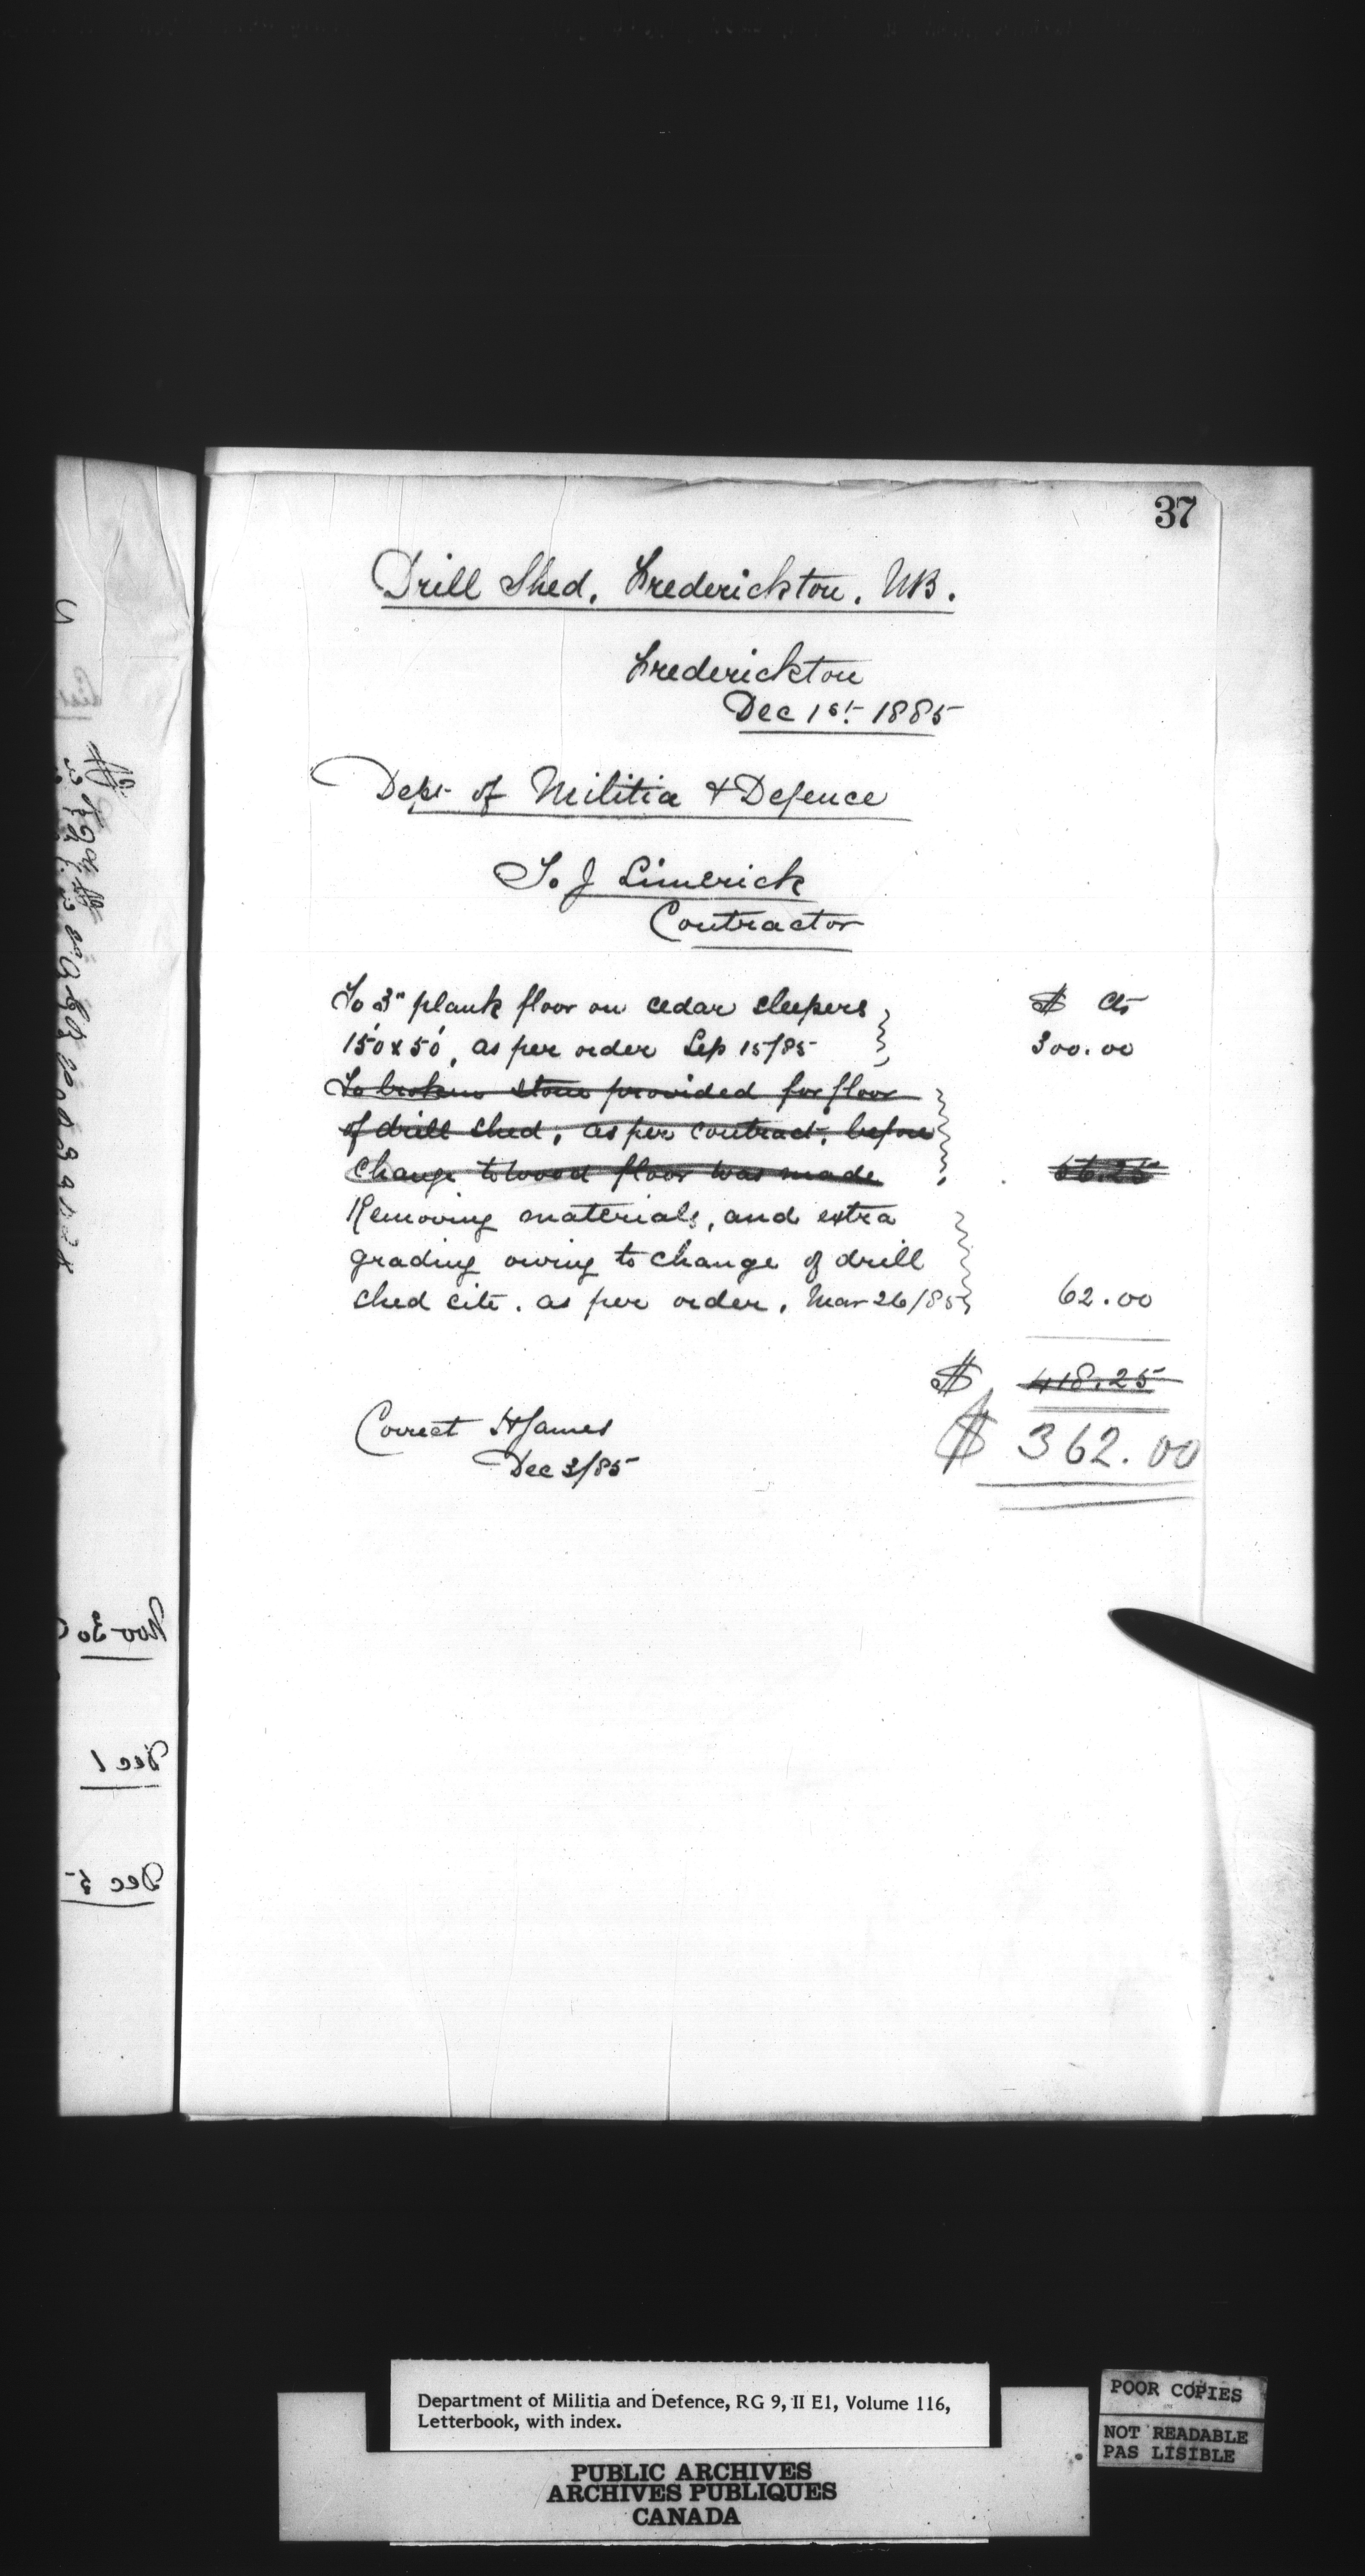 37
Drill Shed. Frederickton. N.B.
Frederickton
Dec 1st 1885
Dept of Militia & Defence
To J Limerick
Contractor
To 3" plank floor on cedar sleepers
150' x 50', as per order Sep 15/85
$ cts
300.00
To broken stone provided for floor
of drill shed, as per contract, before
change to wood floor was made
56.25
Removing materials, and extra
grading owing to change of drill
shed site. as per order, Mar 26/85
62.00
$ 418.25
$ 362.00
Correct H James
Dec 3/85
Nov 30
Dec 1
Dec 5
Department of Militia and Defence, RG 9, II E1, Volume 116,
Letterbook, with index.
PUBLIC ARCHIVES
ARCHIVES PUBLIQUES
CANADA
POOR COPIES
NOT READABLE
PAS LISIBLE